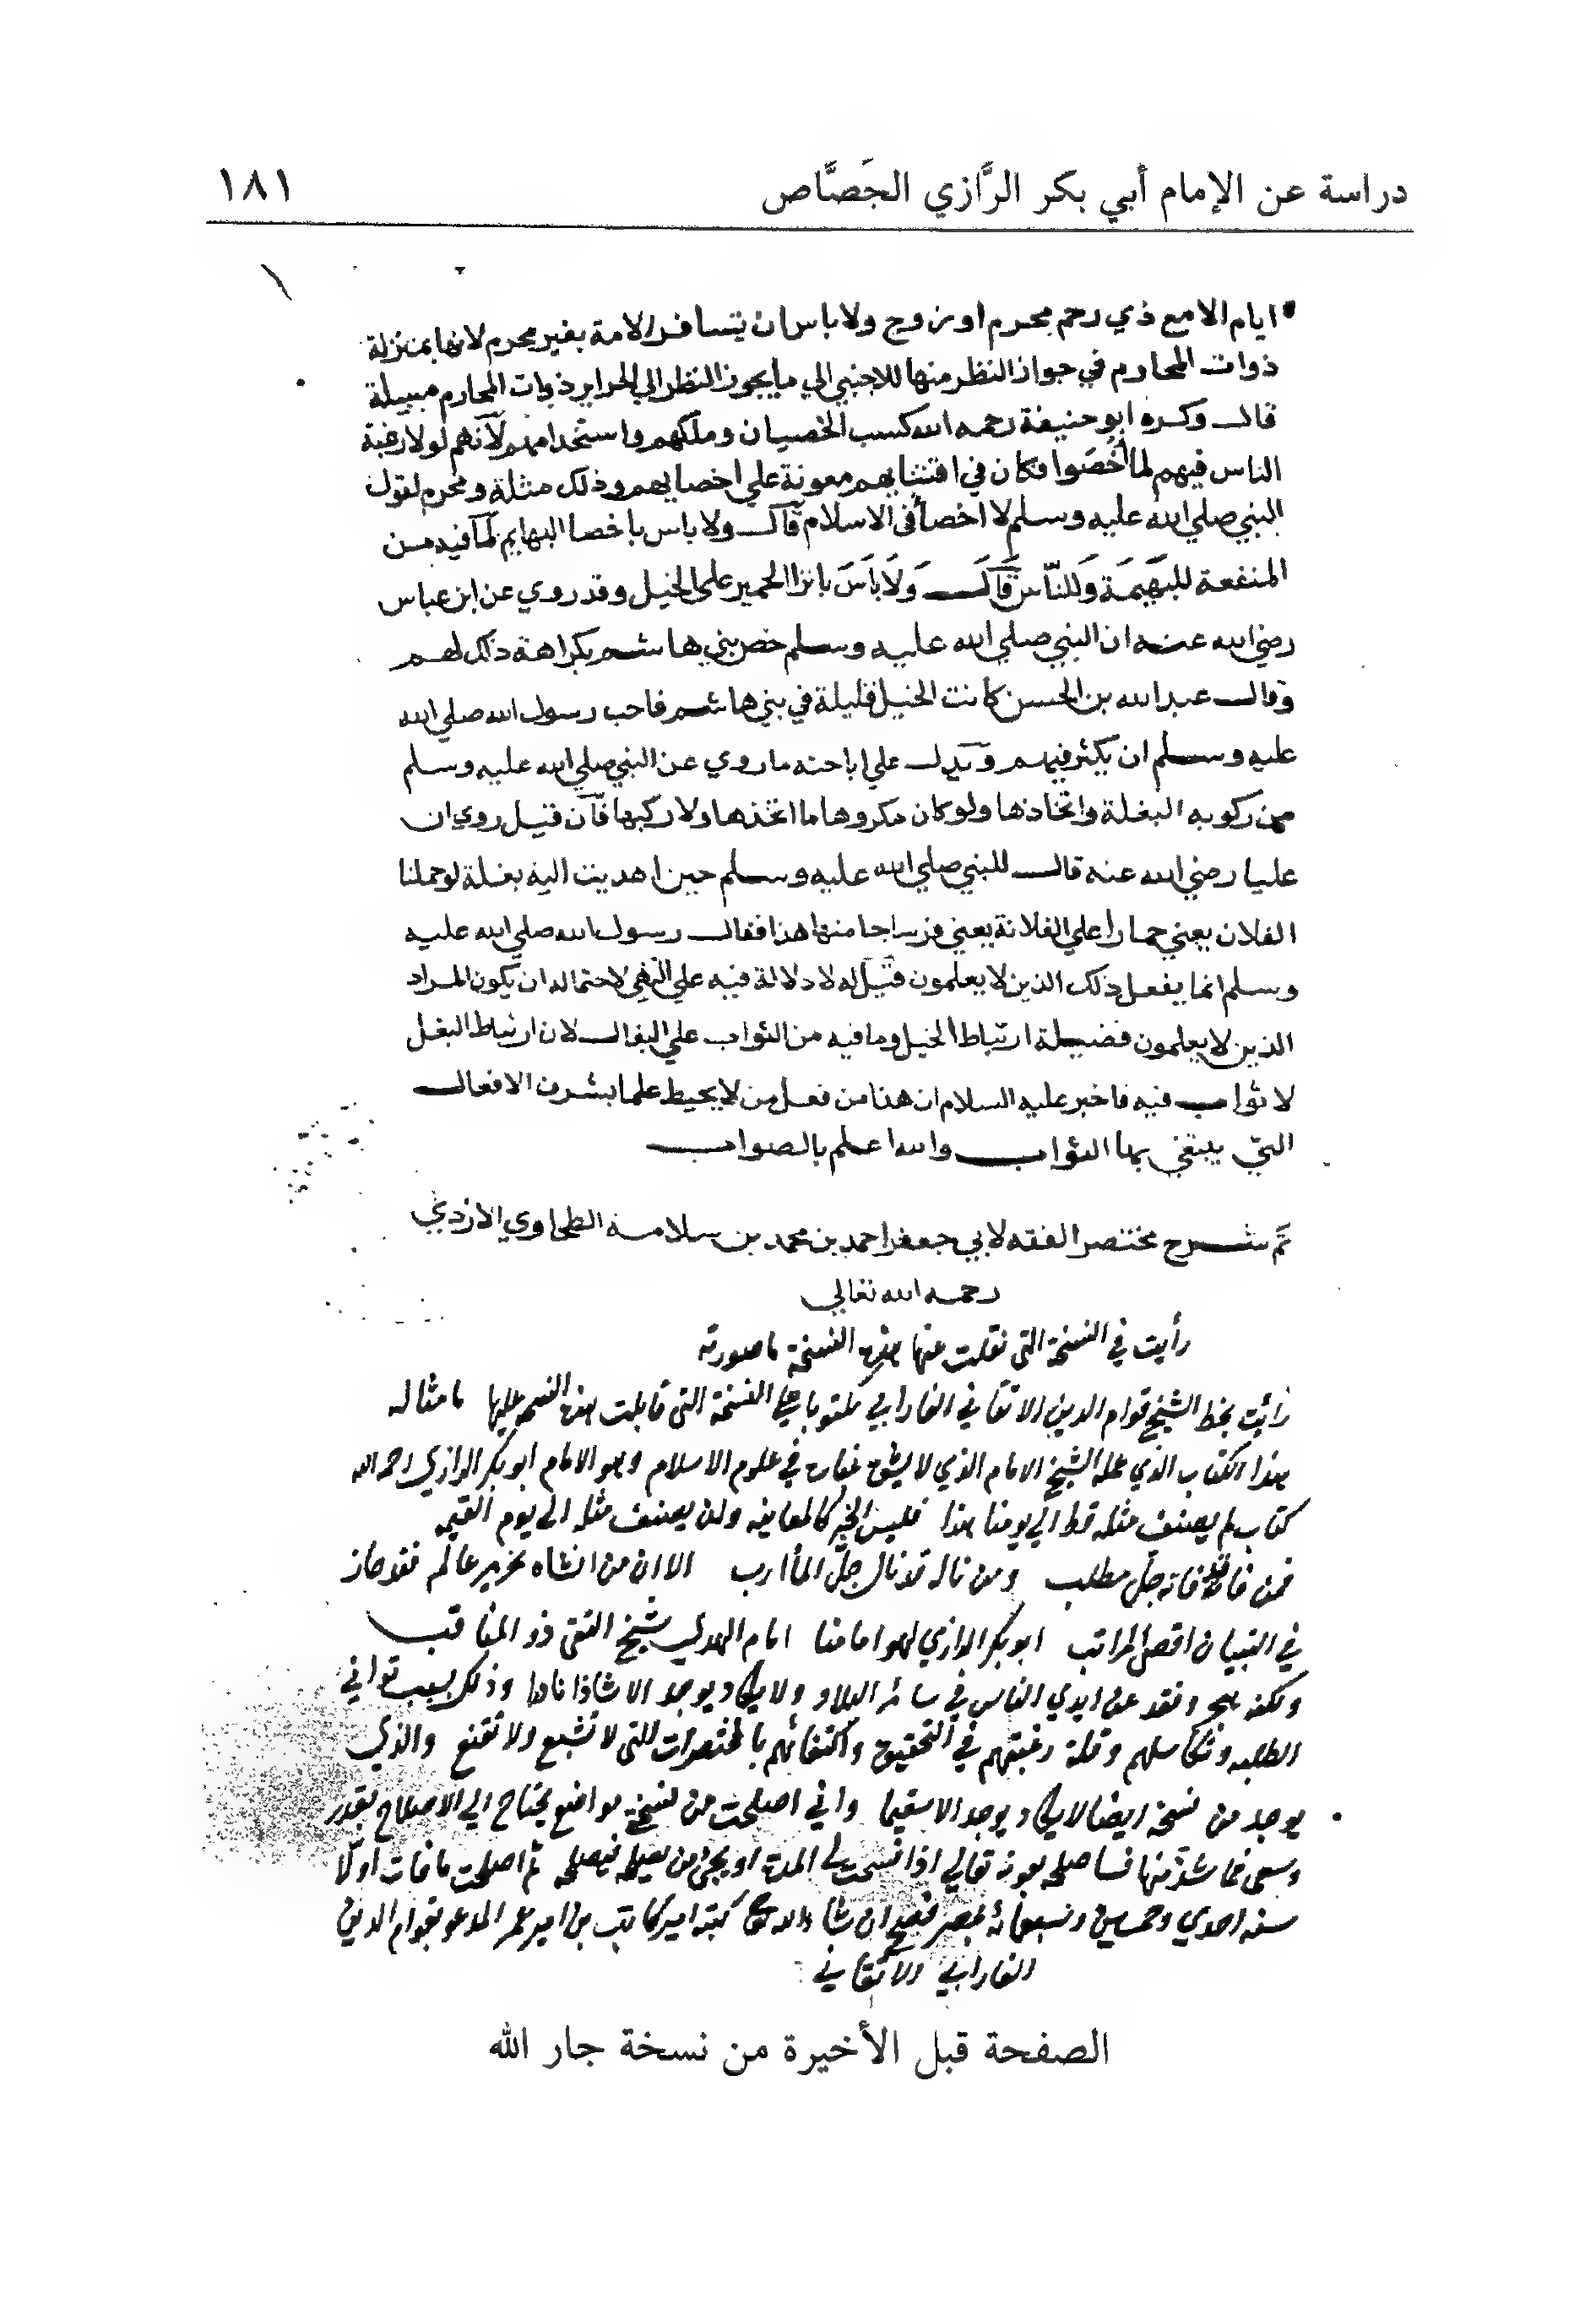 دراسة عن الإمام أبي بكر الرَّازي الجَصَّاص ١٨١
ايام الا مع ذي رحم محرم او زوج ولا باس ان تسافر الامة بغير محرم لانها بمنزلة
ذوات المحارم في جواز النظر منها للاجنبي الي ما يجوز النظر الي الحراير ذوات المحارم
قال وكره ابو حنيفة رحمه الله كسب الخصيان وملكهم واستخدامهم لانهم لولا رغبة
الناس فيهم لما أخصوا فكان في اقتنايهم معونة علي اخصايهم وذلك مثلة ومحرم لقول
النبي صلي الله عليه وسلم لا اخصأ في الاسلام قال ولا باس باخصا البهايم لما فيه من
المنفعة للبهيمة وللناس قال ولا باس بانزا الحمير علي الخيل وقد روي عن ابن عباس
رضي الله عنه ان النبي صلي الله عليه وسلم خص بني هاشم بكراهة ذلك لهم
وقال عبد الله بن الحسن كانت الخيل قليلة في بني هاشم فاحب رسول الله صلي الله
عليه وسلم ان يكثر فيهم ويدل علي اباحته ما روي عن النبي صلي الله عليه وسلم
من ركوبه البغلة واتخاذها ولو كان مكروها ما اتخذها ولا ركبها فان قيل روي ان
عليا رضي الله عنه قال للنبي صلي الله عليه وسلم حين اهديت اليه بغلة لو حملنا
الفلان يعني حمارا علي الفلانة يعني فرسا جا منها هذا فقال رسول الله صلي الله عليه
وسلم انما يفعل ذلك الذين لا يعلمون قيل له لا دلالة فيه علي النهي لاحتماله ان يكون المراد
الذين لا يعلمون فضيلة ارتباط الخيل وما فيه من الثواب علي البغال لان ارتباط البغل
لا ثواب فيه فاخبر عليه السلام ان هذا من فعل من لا يحيط علما بشرف الافعال
التي يبتغي بها الثواب والله اعلم بالصواب
تم شرح مختصر الفقه لابي جعفر احمد بن محمد بن سلامة الطحاوي الازدي
رحمه الله تعالي
رأيت في النسخة التي نقلت عنها هذه النسخة ما صورته
رأيت بخط الشيخ قوام الدين الاتقاني الفارابي مكتوبا علي النسخة التي قابلت هذه النسخه عليها ما مثاله
هذا الكتاب الذي عمله الشيخ الامام الذي لا يشق غباره في علوم الاسلام وهو الامام ابو بكر الرازي رحمه الله
كتاب لم يصنف مثله قط الي يومنا هذا فليس الخبر كالمعاينه ولن يصنف مثله الي يوم القيمه
فمن فاته فقد فاته جل مطلب ومن ناله قد نال جل المأارب الا ان من انشاه نحرير عالم فقد حاز
في التبيان اقصي المراتب ابو بكر الرازي لهو امامنا امام الهدي شيخ التقى ذو المناقب
ولكنه هجر وفقد عن ايدي الناس في سائر البلاد ولا يكاد يوجد الا شاذا نادرا وذلك بسبب تواني
الطلبه وتكاسلهم وقلة رغبتهم في التحقيق واكتفائهم بالمختصرات التي لا تشبع ولا تقنع والذي
يوجد من نسخه ايضا لا يكاد يوجد الا سقيما واني اصلحت من نسخته مواضع يحتاج الي الاصلاح بقدر
وسعي فما شذ منها فساصلحه بعونه تعالي اذا فسحت لي المدة او يجئ من يصلحه فيصلحه ثم اصلحت ما فات اولا
سنه احدي وخمسين وسبعمائة بمصر فصح ان شاء الله كتبه امير كاتب بن امير عمر المدعو بقوام الدين
الفارابي الاتقاني
الصفحة قبل الأخيرة من نسخة جار الله